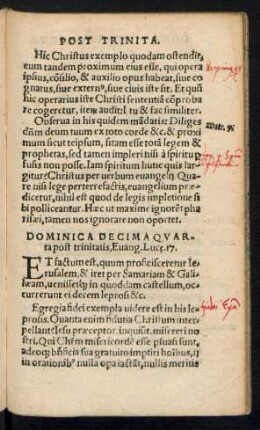 POST TRINITA.
Hic Christus exemplo quodam ostendit,
eum tandem proximum eius esse, qui opera
ipsius, cōsilio, & auxilio opus habeat, siue co
gnatus, siue externꝰ, siue ciuis iste sit. Et quā
hic operarius iste Christi sententiā cōproba
re cogeretur, item audit, I tu & fac similiter.
Obserua in his quidem mādatis: Diliges
dūm deum tuum ex toto corde &c. & proxi
mum sicut teipsum, sitam esse totā legem &
prophetas, sed tamen impleri nisi à spiritu p
fusa non posse. Iam spiritum hunc quis lar
gitur? Christus per uerbum euangelij. Quare
nisi lege perterrefactis, euangelium præ
dicetur, nihil est quod de legis impletione si
bi polliceantur. Hæc ut maxime ignorēt pha
risæi, tamen nos ignorare non oportet.
DOMINICA DECIMAQVAR
ta post trinitatis, Euang. Lucæ.17.
ET factum est, quum proficisceretur Ie
rusalem, & iret per Samariam & Gali
læam, uenissetq; in quoddam castellum, oc
currerunt ei decem leprosi &c.
Egregia fidei exempla uidere est in his le
prosis. Quanta enim fiducia Christum inter
pellant? Iesu præceptor, inquiūt, miserere no
stri. Qui Chrēm misericordē esse psuasi sunt,
adeoq; bñficia sua gratuito impurtiri hoībus, ꝛ
in orationibꝰ nulla opa iactāt, nullis meritis